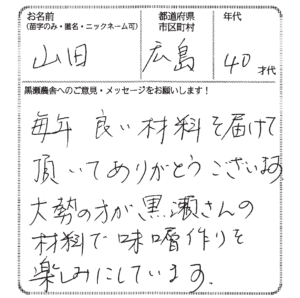 お名前
(苗字のみ・匿名・ニックネーム可)
都道府県
市区町村
年代
山田
広島
40才代
黒瀬農舎へのご意見・メッセージをお願いします!
毎年 良い材料を届けて
頂いてありがとうございます
大勢の方が黒瀬さんの
材料で味噌作りを
楽しみにしています.